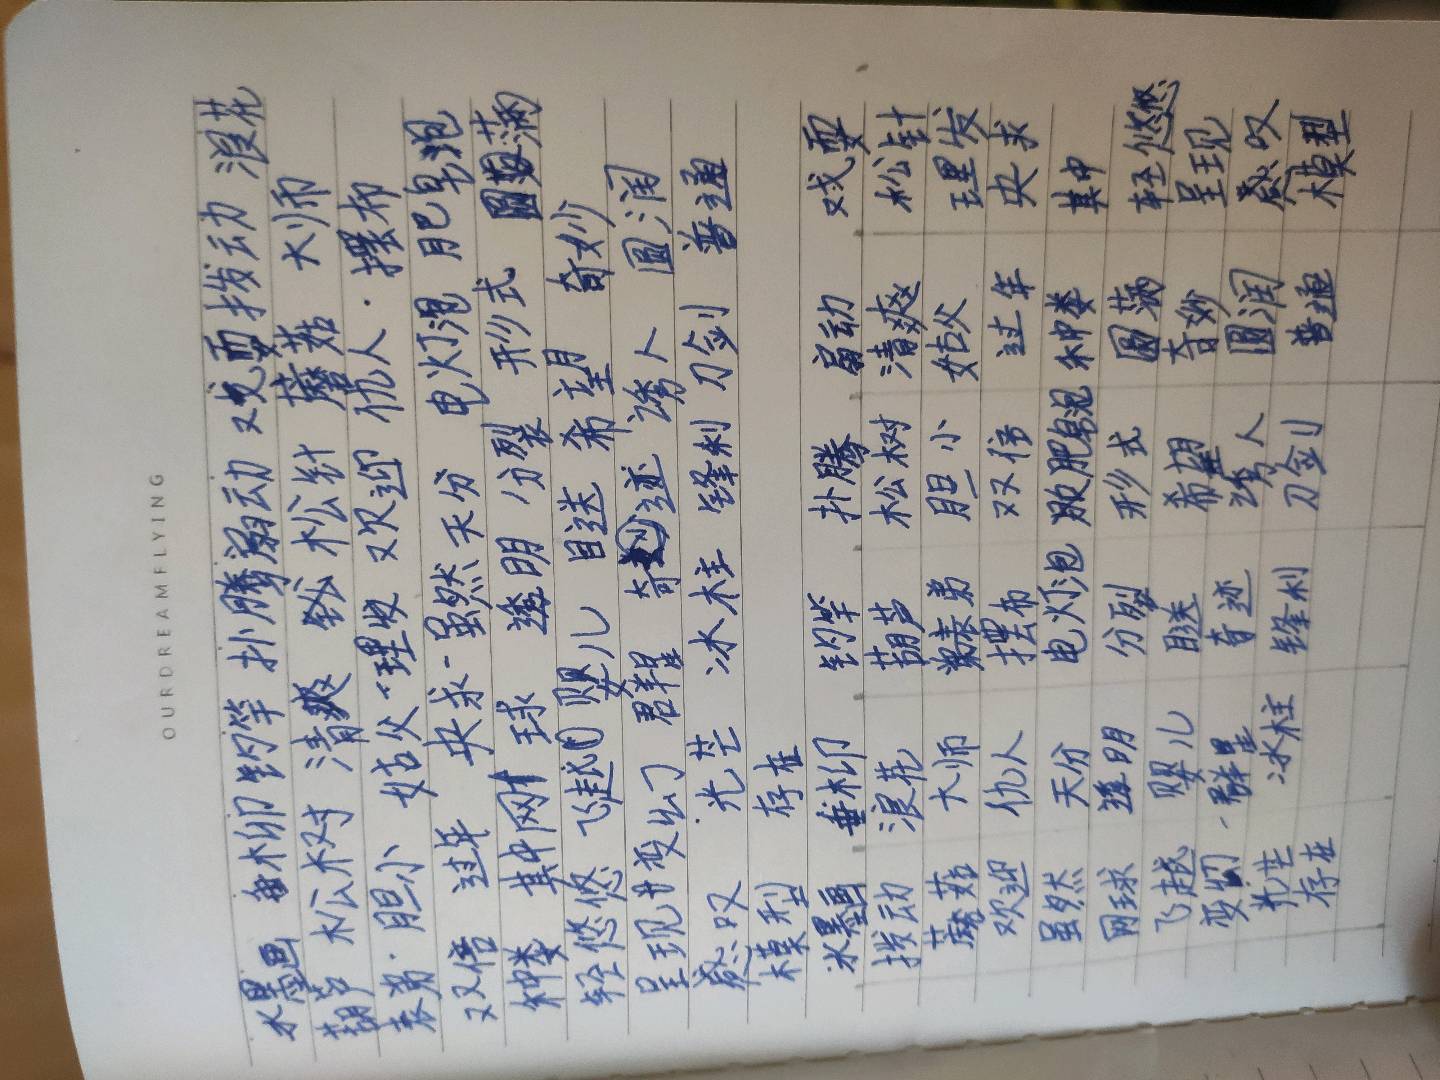 OURDREAMFLYING
水墨画 垂柳 钓竿 扑腾 扇动 戏耍 拨动 浪花
葫芦 松树 清爽 松针 蘑菇 大师
表弟·胆小 姑父 理发 欢迎 仇人·摆布
双倍 过年 央求 虽然 天分 电灯泡 肥皂泡
种类 其中 网球 透明 分裂 形式 圆满
轻悠悠 飞越 婴儿 目送 希望 奇妙
呈现 变幻 群星 奇迹 诱人 圆润
感叹 光芒 冰柱 锋利 刀剑 普通
模型 存在
水墨画 垂柳 钓竿 扑腾 扇动 戏耍
拨动 浪花 葫芦 松树 清爽 松针
蘑菇 大师 表弟 胆小 姑父 理发
欢迎 仇人 摆布 双倍 过年 央求
虽然 天分 电灯泡 肥皂泡 种类 其中
网球 透明 分裂 形式 圆满 轻悠悠
飞越 婴儿 目送 希望 奇妙 呈现
变幻 群星 奇迹 诱人 圆润 感叹
光芒 冰柱 锋利 刀剑 普通 模型
存在